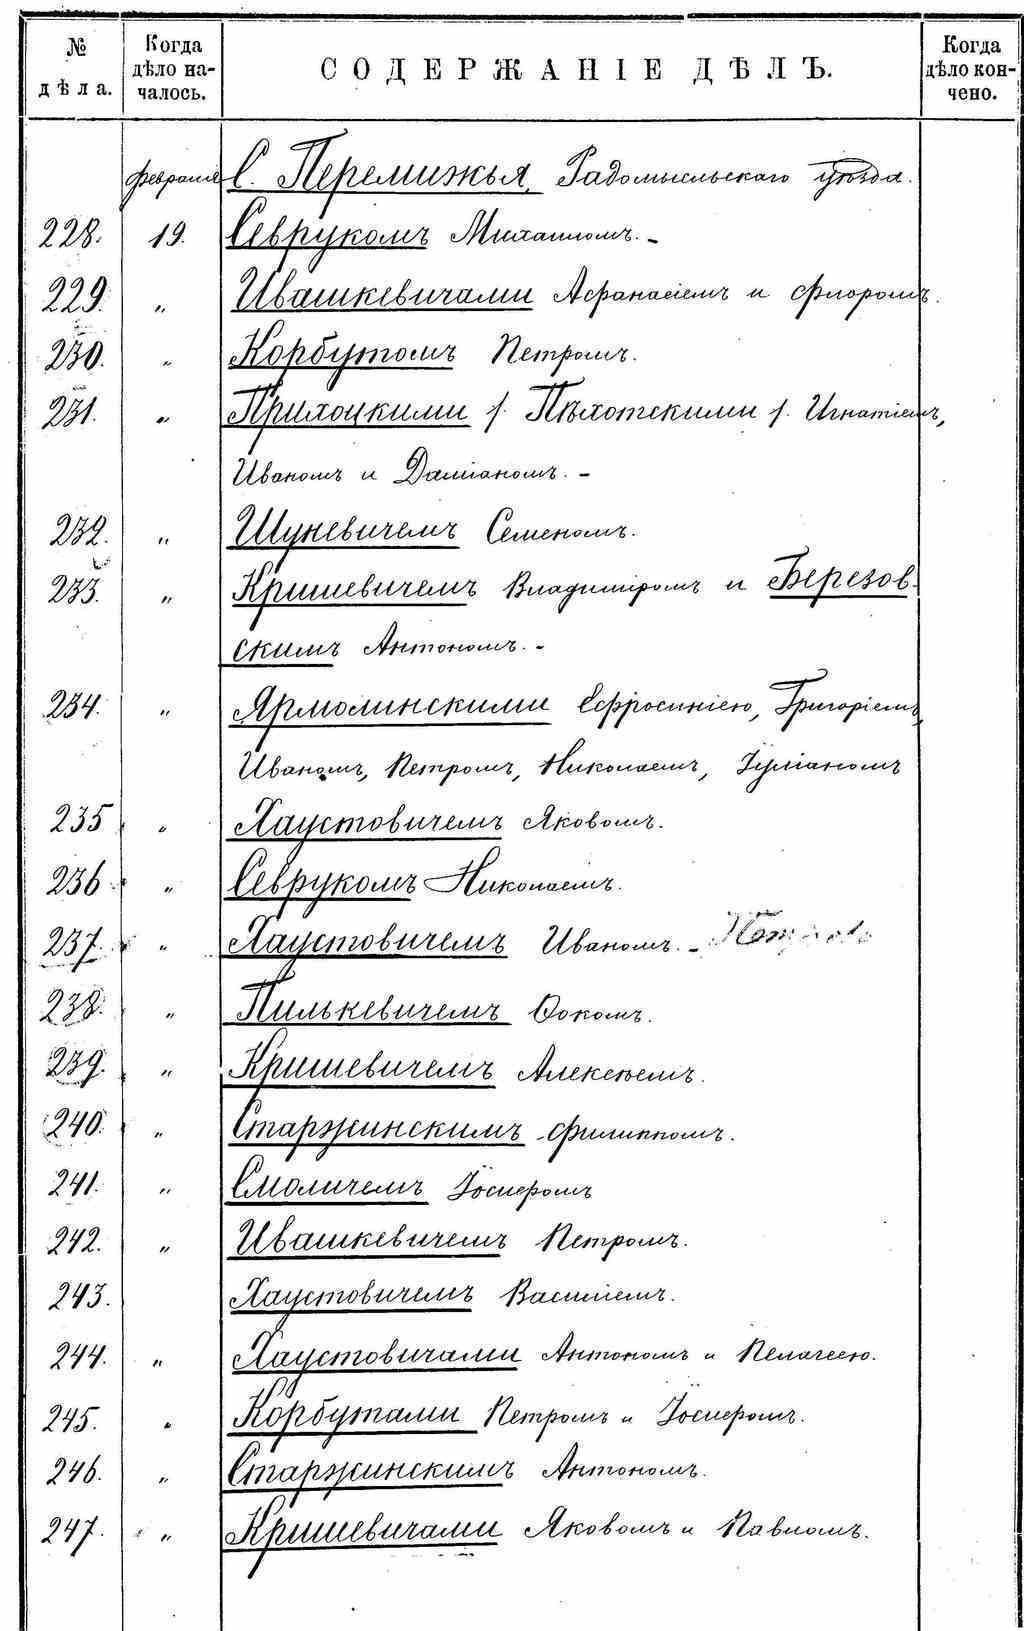 № дѣла.
Когда дѣло на-
чалось.
СОДЕРЖАНІЕ ДѢЛЪ.
Когда дѣло кон-
чено.
февраля С. Перемижья, Радомысльскаго уѣзда.
228. 19. Севрукомъ Михаиломъ. –
229. „ Ивашкевичами Афанасіемъ и Флоромъ.
230. „ Корбутомъ Петромъ.
231. „ Прилоцкими /. Пѣхотскими /. Игнатіемъ,
Иваномъ и Даміаномъ. –
232. „ Шукевичемъ Семеномъ.
233. „ Кришевичемъ Владиміромъ и Березов-
скимъ Антономъ. –
234. „ Ярмолинскими Ефросиніею, Григоріемъ,
Иваномъ, Петромъ, Николаемъ, Іуліаномъ
235 „ Хаустовичемъ Яковомъ.
236 „ Севрукомъ Николаемъ.
237. „ Хаустовичемъ Иваномъ. –
238. „ Пилькевичемъ Ѳокомъ.
239. „ Кришевичемъ Алексѣемъ.
240. „ Старжинскимъ Филиппомъ.
241. „ Смоличемъ Іосифомъ
242. „ Ивашкевичемъ Петромъ.
243. Хаустовичемъ Василіемъ.
244. „ Хаустовичами Антономъ и Пелагеею.
245. „ Корбутами Петромъ и Іосифомъ.
246. „ Старжинскимъ Антономъ.
247. „ Кришевичами Яковомъ и Павломъ.